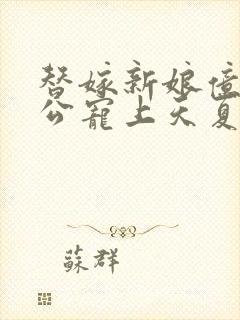 替嫁新娘億
公寵上天夏
蘇群